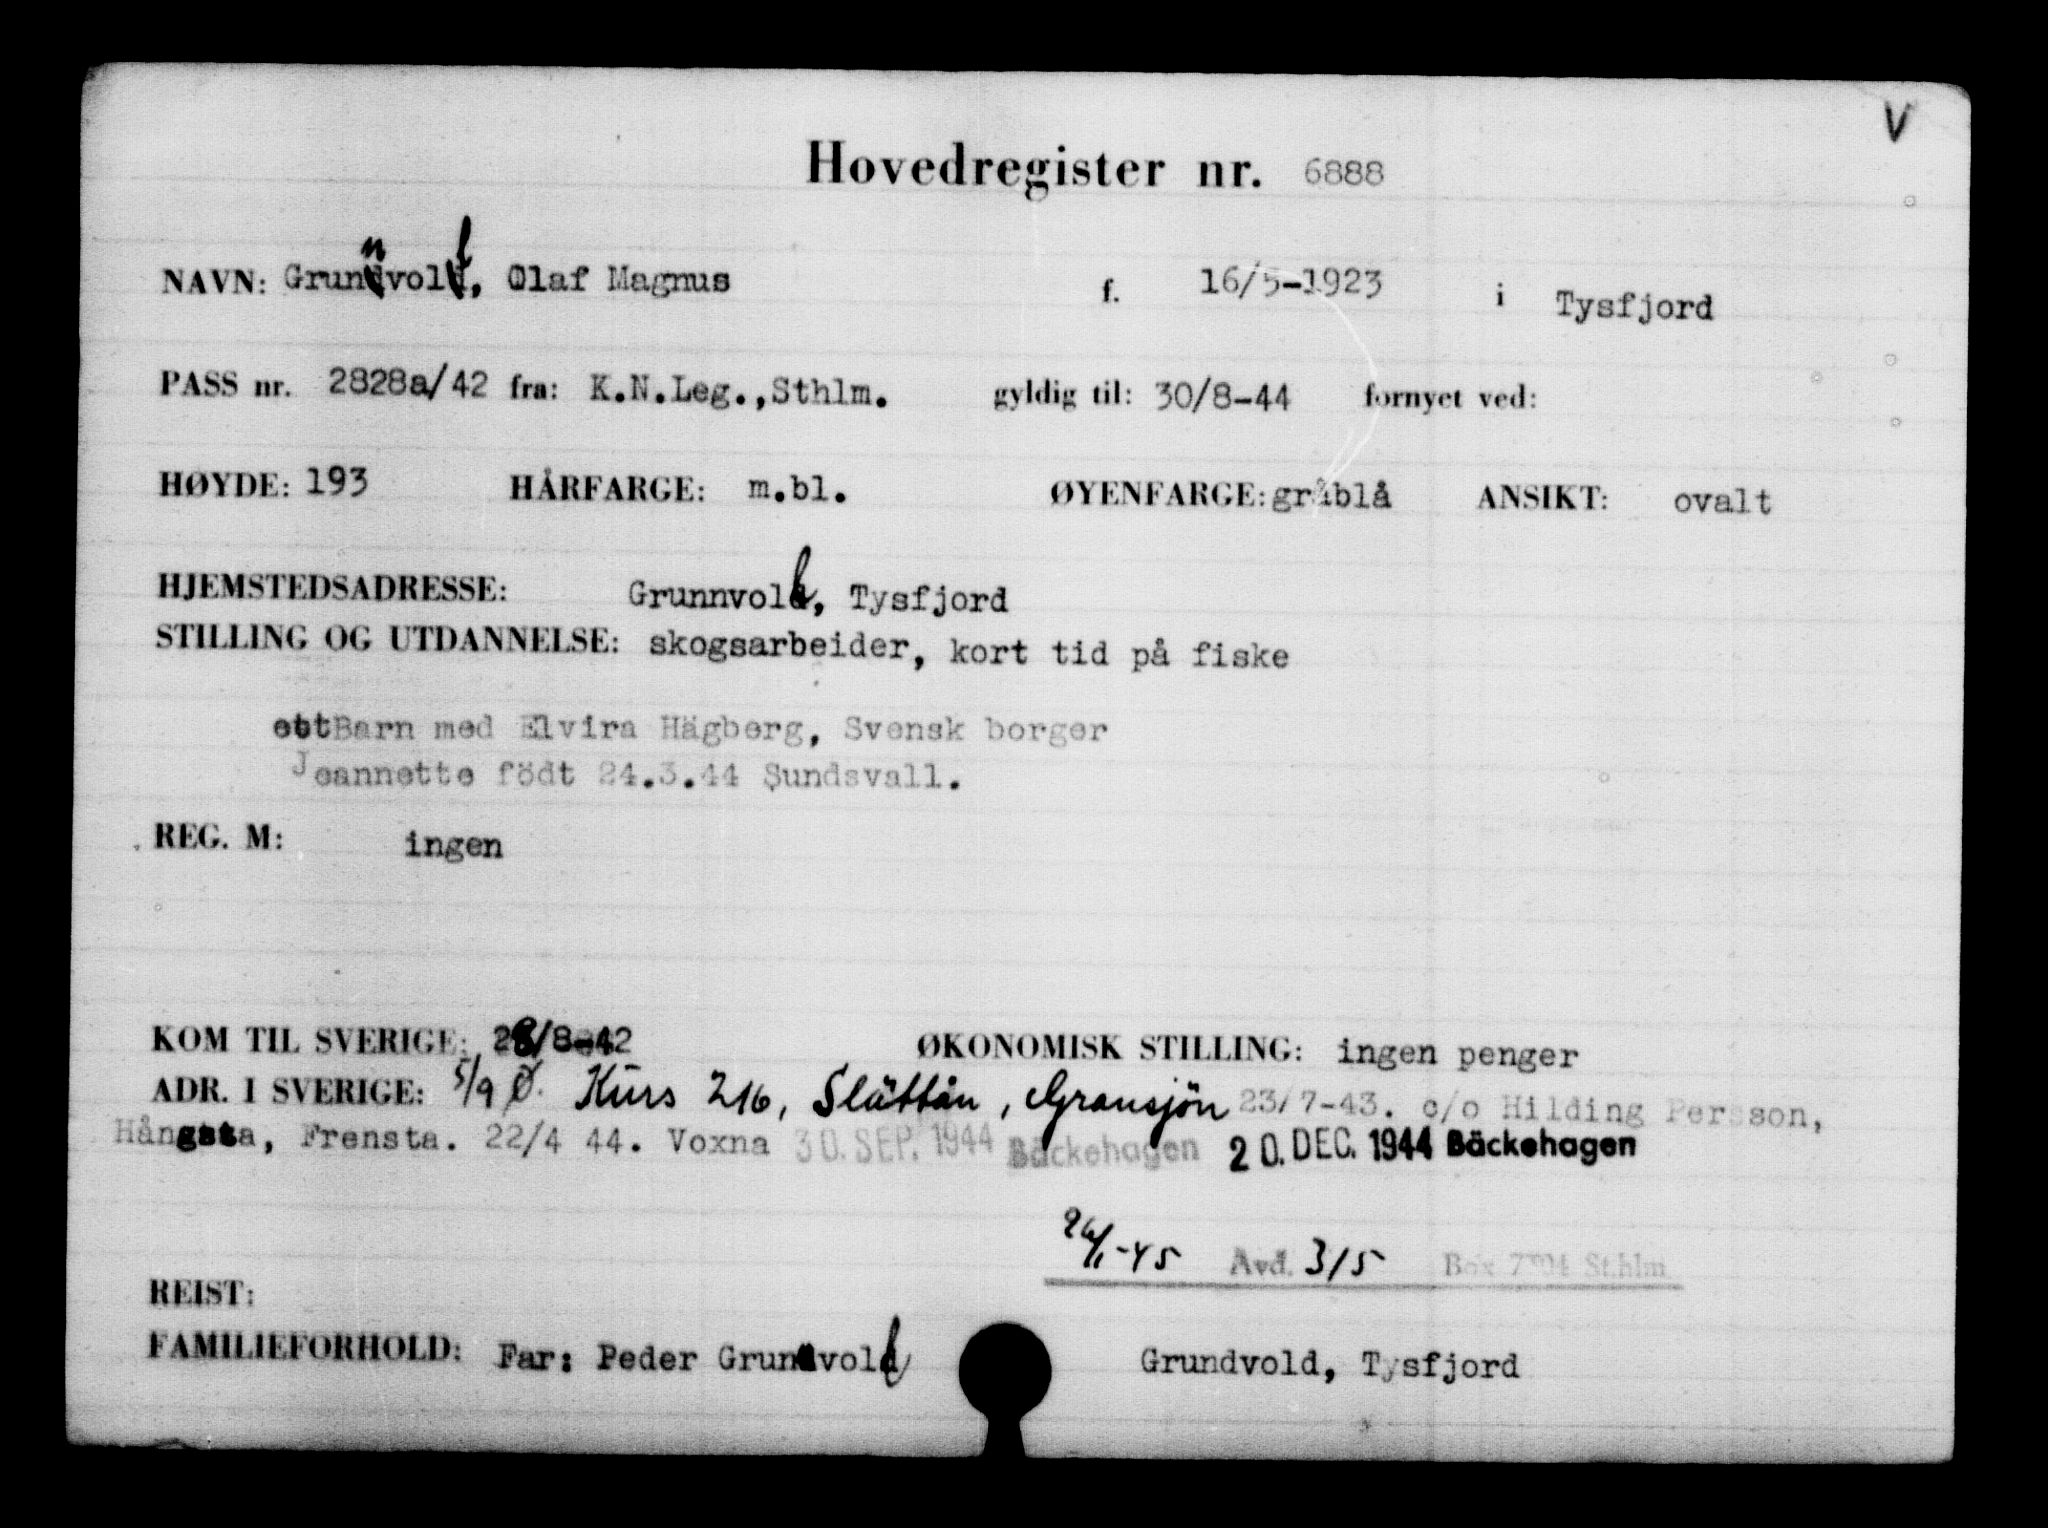 V
Hovedregister nr. 6888
NAVN: Grunnvoll, Olaf Magnus f. 16/5-1923 i Tysfjord
PASS nr. 2828a/42 fra: K.N.Leg.,Sthlm. gyldig til: 30/8-44 fornyet ved:
HØYDE: 193 HÅRFARGE: m.bl. ØYENFARGE: gråblå ANSIKT: ovalt
HJEMSTEDSADRESSE: Grunnvoll, Tysfjord
STILLING OG UTDANNELSE: skogsarbeider, kort tid på fiske
ett Barn med Elvira Hägberg, Svensk borger
Jeannette födt 24.3.44 Sundsvall.
REG. M: ingen
KOM TIL SVERIGE: 28/8-42 ØKONOMISK STILLING: ingen penger
ADR. I SVERIGE: 5/9 Ø. Kurs 216, Slättån, Gransjön 23/7-43. c/o Hilding Persson,
Hångsta, Frensta. 22/4 44. Voxna 30. SEP. 1944 Bäckehagen 20. DEC. 1944 Bäckehagen
26/1-45 Avd. 315 Box Sthlm
REIST:
FAMILIEFORHOLD: Far: Peder Grunnvoll Grundvold, Tysfjord